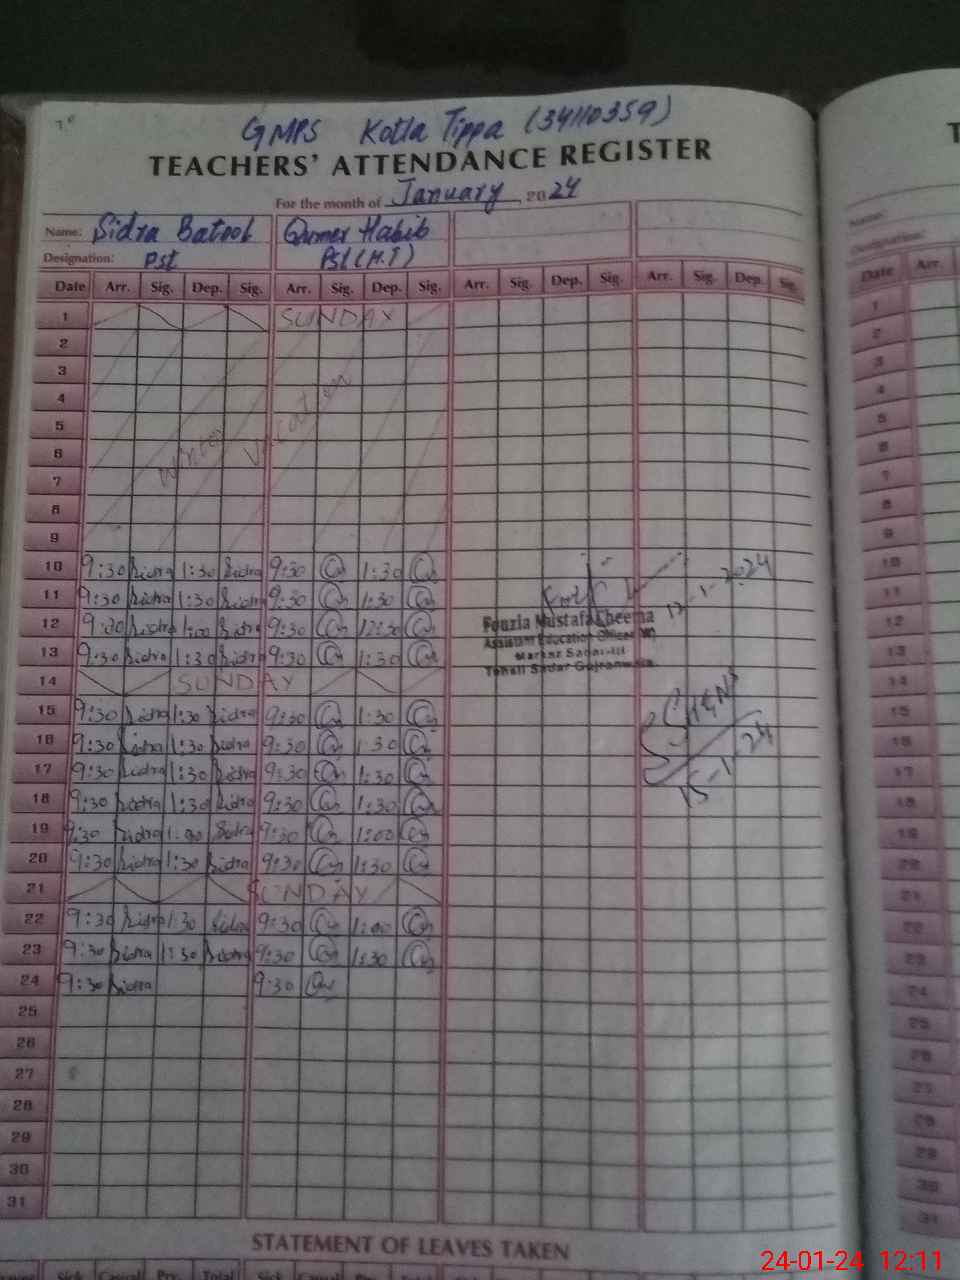 GMPS Kotla Tippa (34110359)
TEACHERS' ATTENDANCE REGISTER
For the month of January, 2024
Name: Sidra Batool Qumer Habib
Designation: Pst Pst (H.T)
Date Arr. Sig. Dep. Sig. Arr. Sig. Dep. Sig. Arr. Sig. Dep. Sig. Arr. Sig. Dep. Sig.
1 SUNDAY
2
3
4
5
6 Winter Vacation
7
8
9
10 9:30 Sidra 1:30 Sidra 9:30 1:30
11 9:30 Sidra 1:30 Sidra 9:30 1:30
12 9:30 Sidra 1:00 Sidra 9:30 12:30
13 9:30 Sidra 1:30 Sidra 9:30 1:30
14 SUNDAY
15 9:30 Sidra 1:30 Sidra 9:30 1:30
16 9:30 Sidra 1:30 Sidra 9:30 1:30
17 9:30 Sidra 1:30 Sidra 9:30 1:30
18 9:30 Sidra 1:30 Sidra 9:30 1:30
19 9:30 Sidra 1:00 Sidra 9:30 1:00
20 9:30 Sidra 1:30 Sidra 9:30 1:30
21 SUNDAY
22 9:30 Sidra 1:30 Sidra 9:30 1:00
23 9:30 Sidra 1:30 Sidra 9:30 1:30
24 9:30 Sidra 9:30
25
26
27
28
29
30
31
12-1-2024
Fouzia Mustafa Cheema
Assistant Education Officer (W)
Markaz Sadar-III
Tehsil Sadar Gujranwala.
15-1-24
STATEMENT OF LEAVES TAKEN
Sick Casual Prv. Total Sick Casual Prv.
Name:
Designation:
Date Arr.
1
2
3
4
5
6
7
8
9
10
11
12
13
14
15
16
17
18
19
20
21
22
23
24
25
26
27
28
29
30
31
24-01-24 12:11